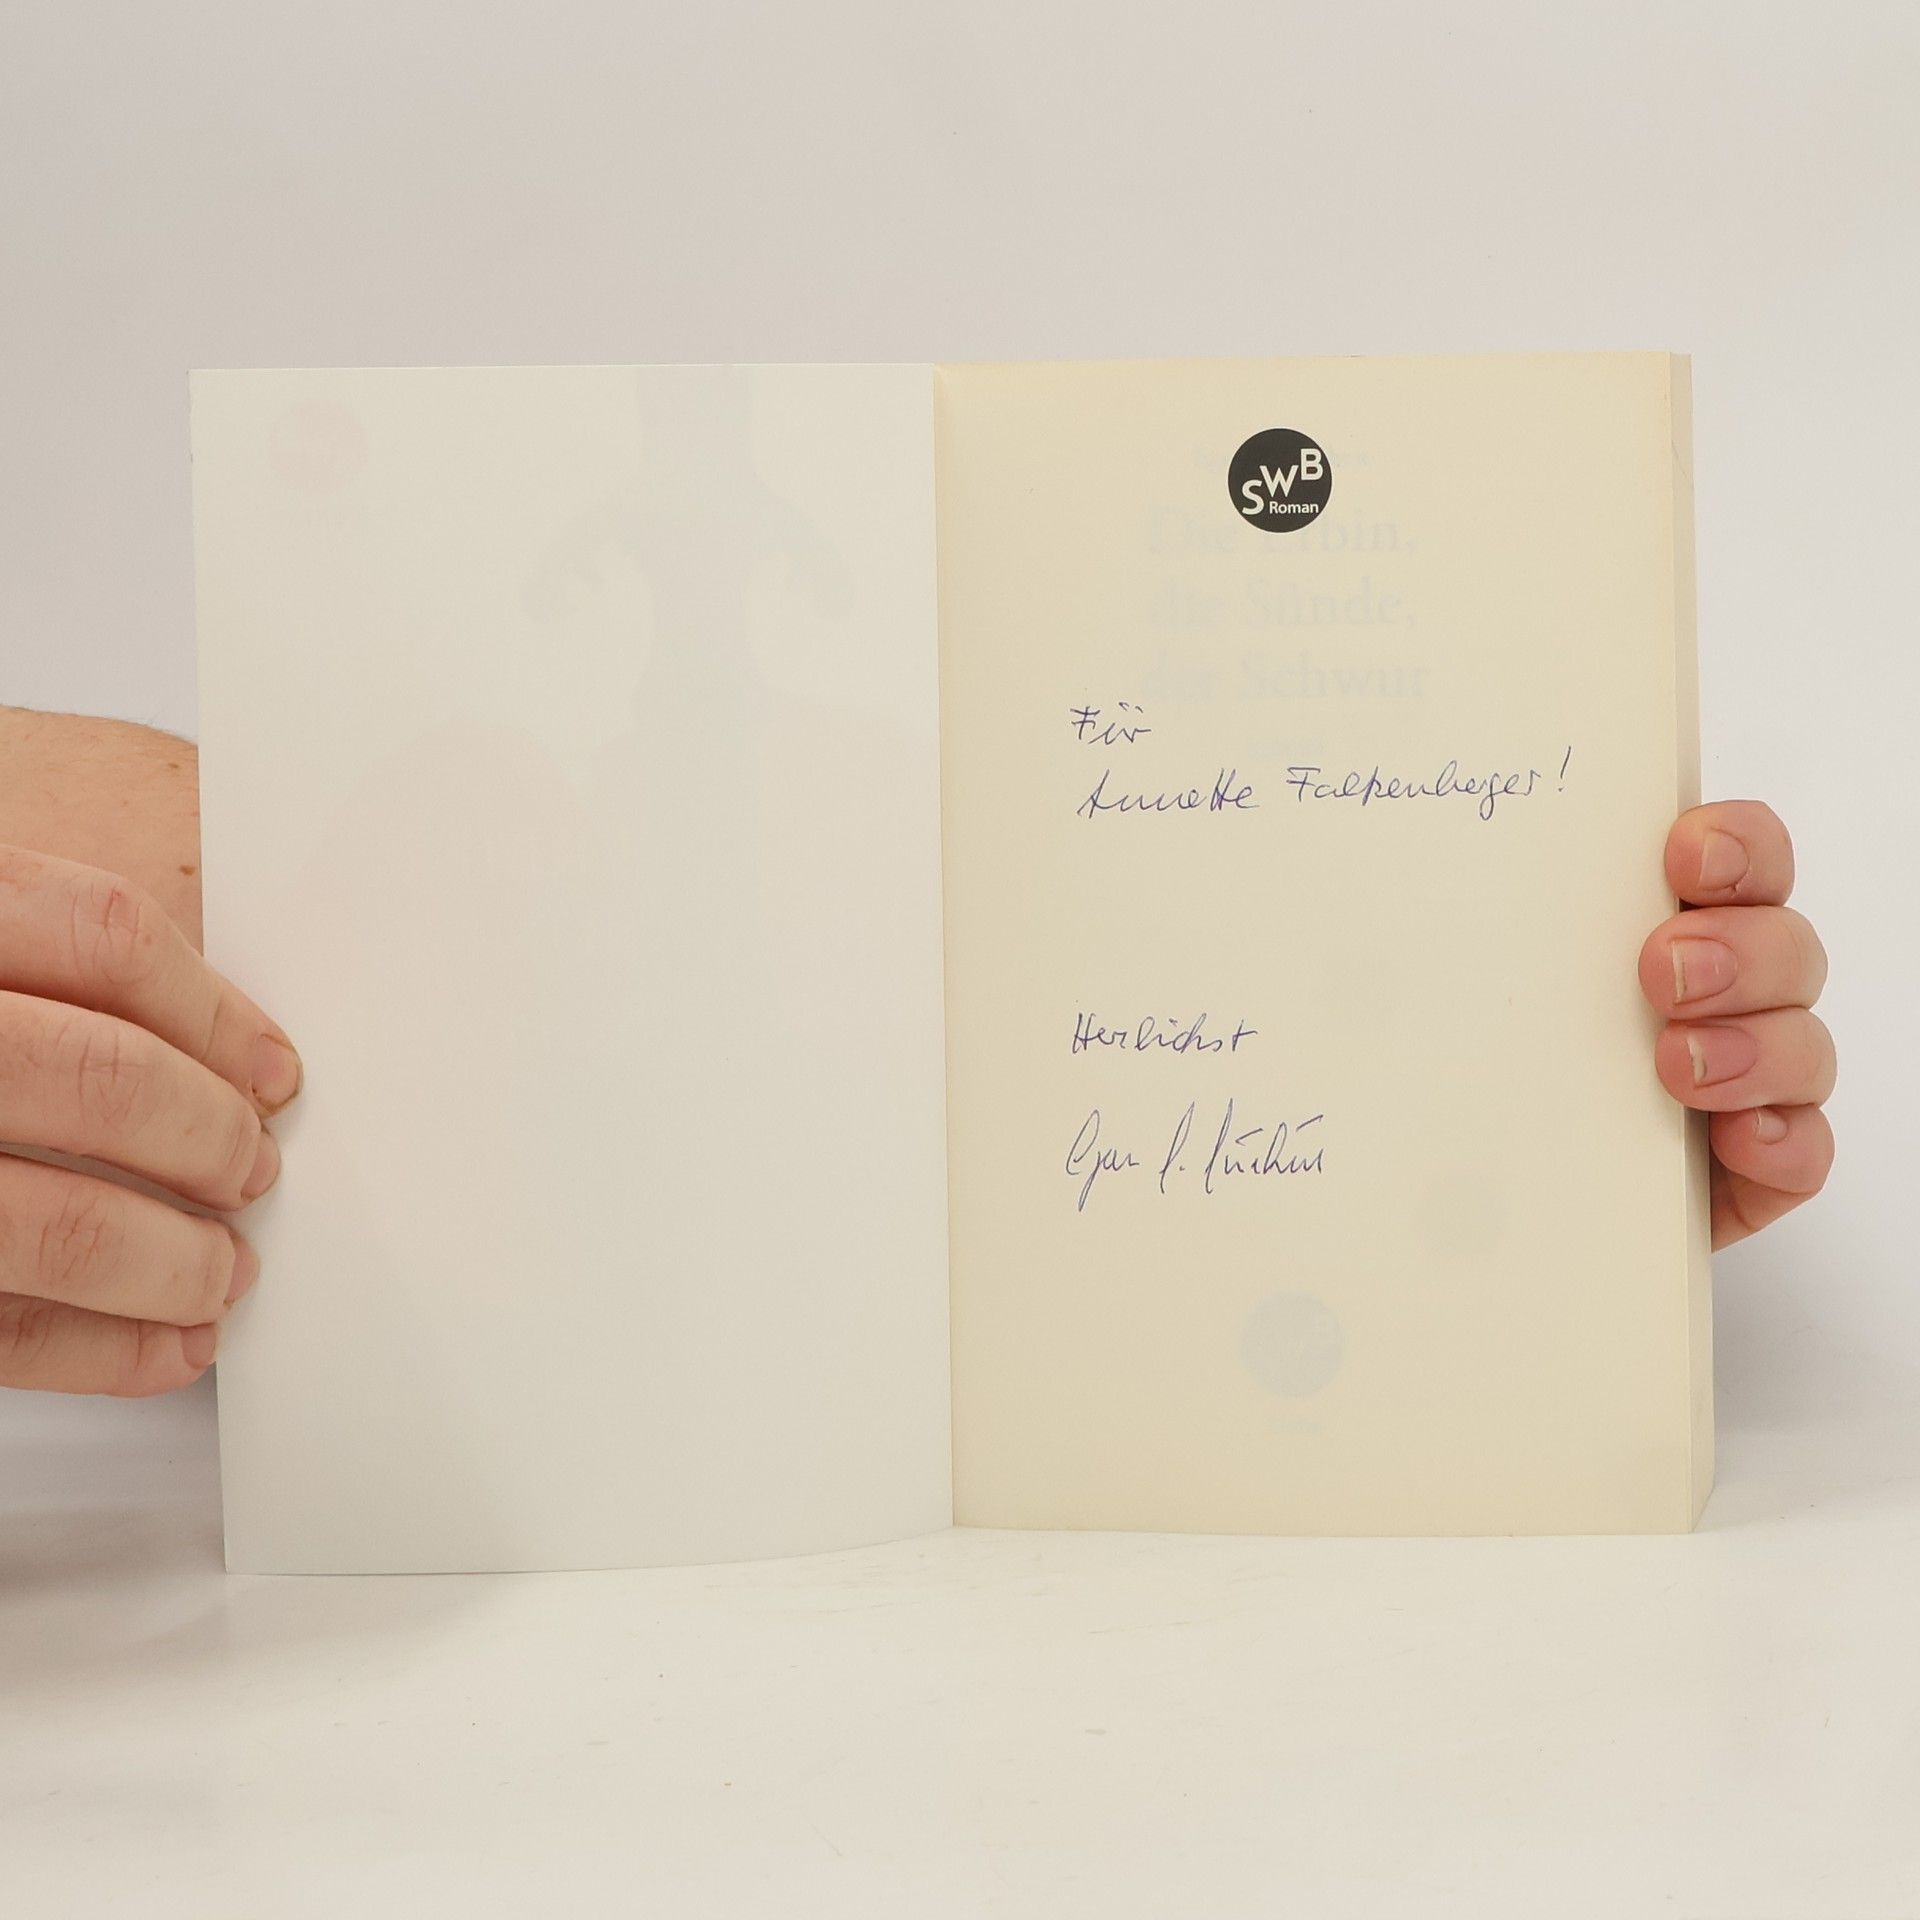 SWB
Roman
Die Erbin,
die Sünde,
der Schwur
Für
Annette Falkenberger!
Herlichst